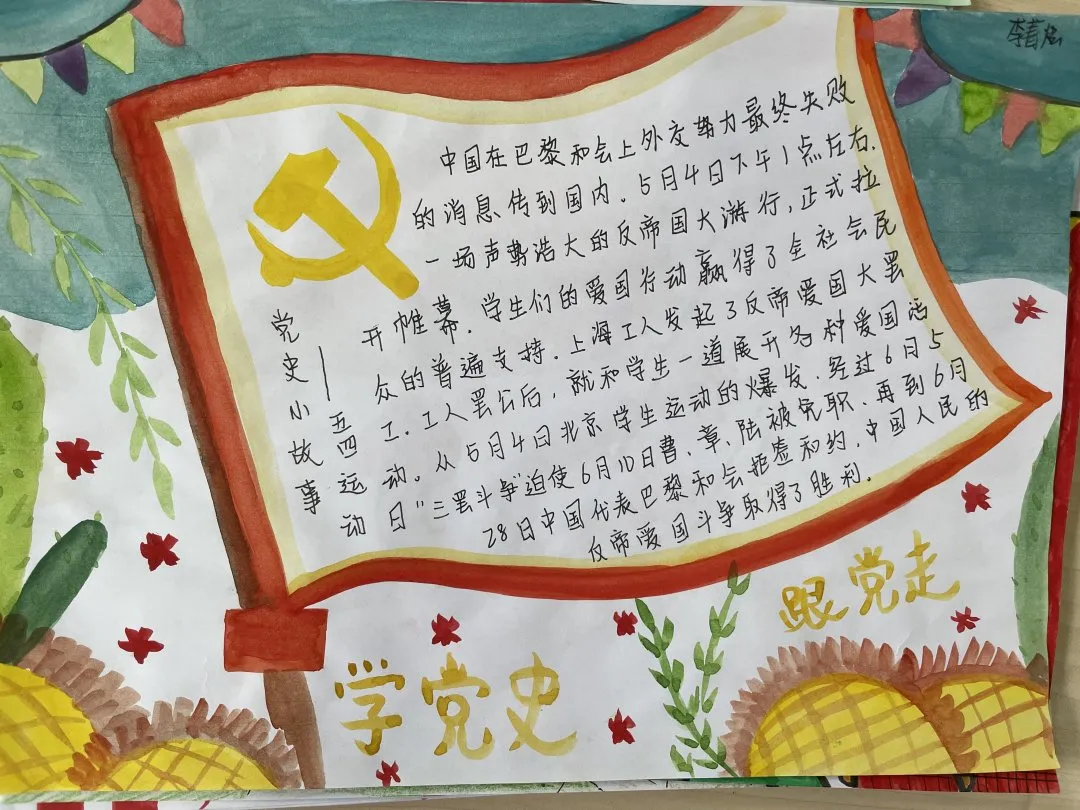 党史小故事
——五四运动
中国在巴黎和会上外交努力最终失败
的消息传到国内.5月4日下午1点左右.
一场声势浩大的反帝国大游行,正式拉
开帷幕.学生们的爱国行动赢得了全社会民
众的普遍支持.上海工人发起了反帝爱国大罢
工.工人罢公后,就和学生一道展开各种爱国活
动。从5月4日北京学生运动的爆发.经过6月5
日"三罢斗争"迫使6月10日曹、章、陆被免职.再到6月
28日中国代表巴黎和会拒签和约.中国人民的
反帝爱国斗争取得了胜利.
学党史
眼党走